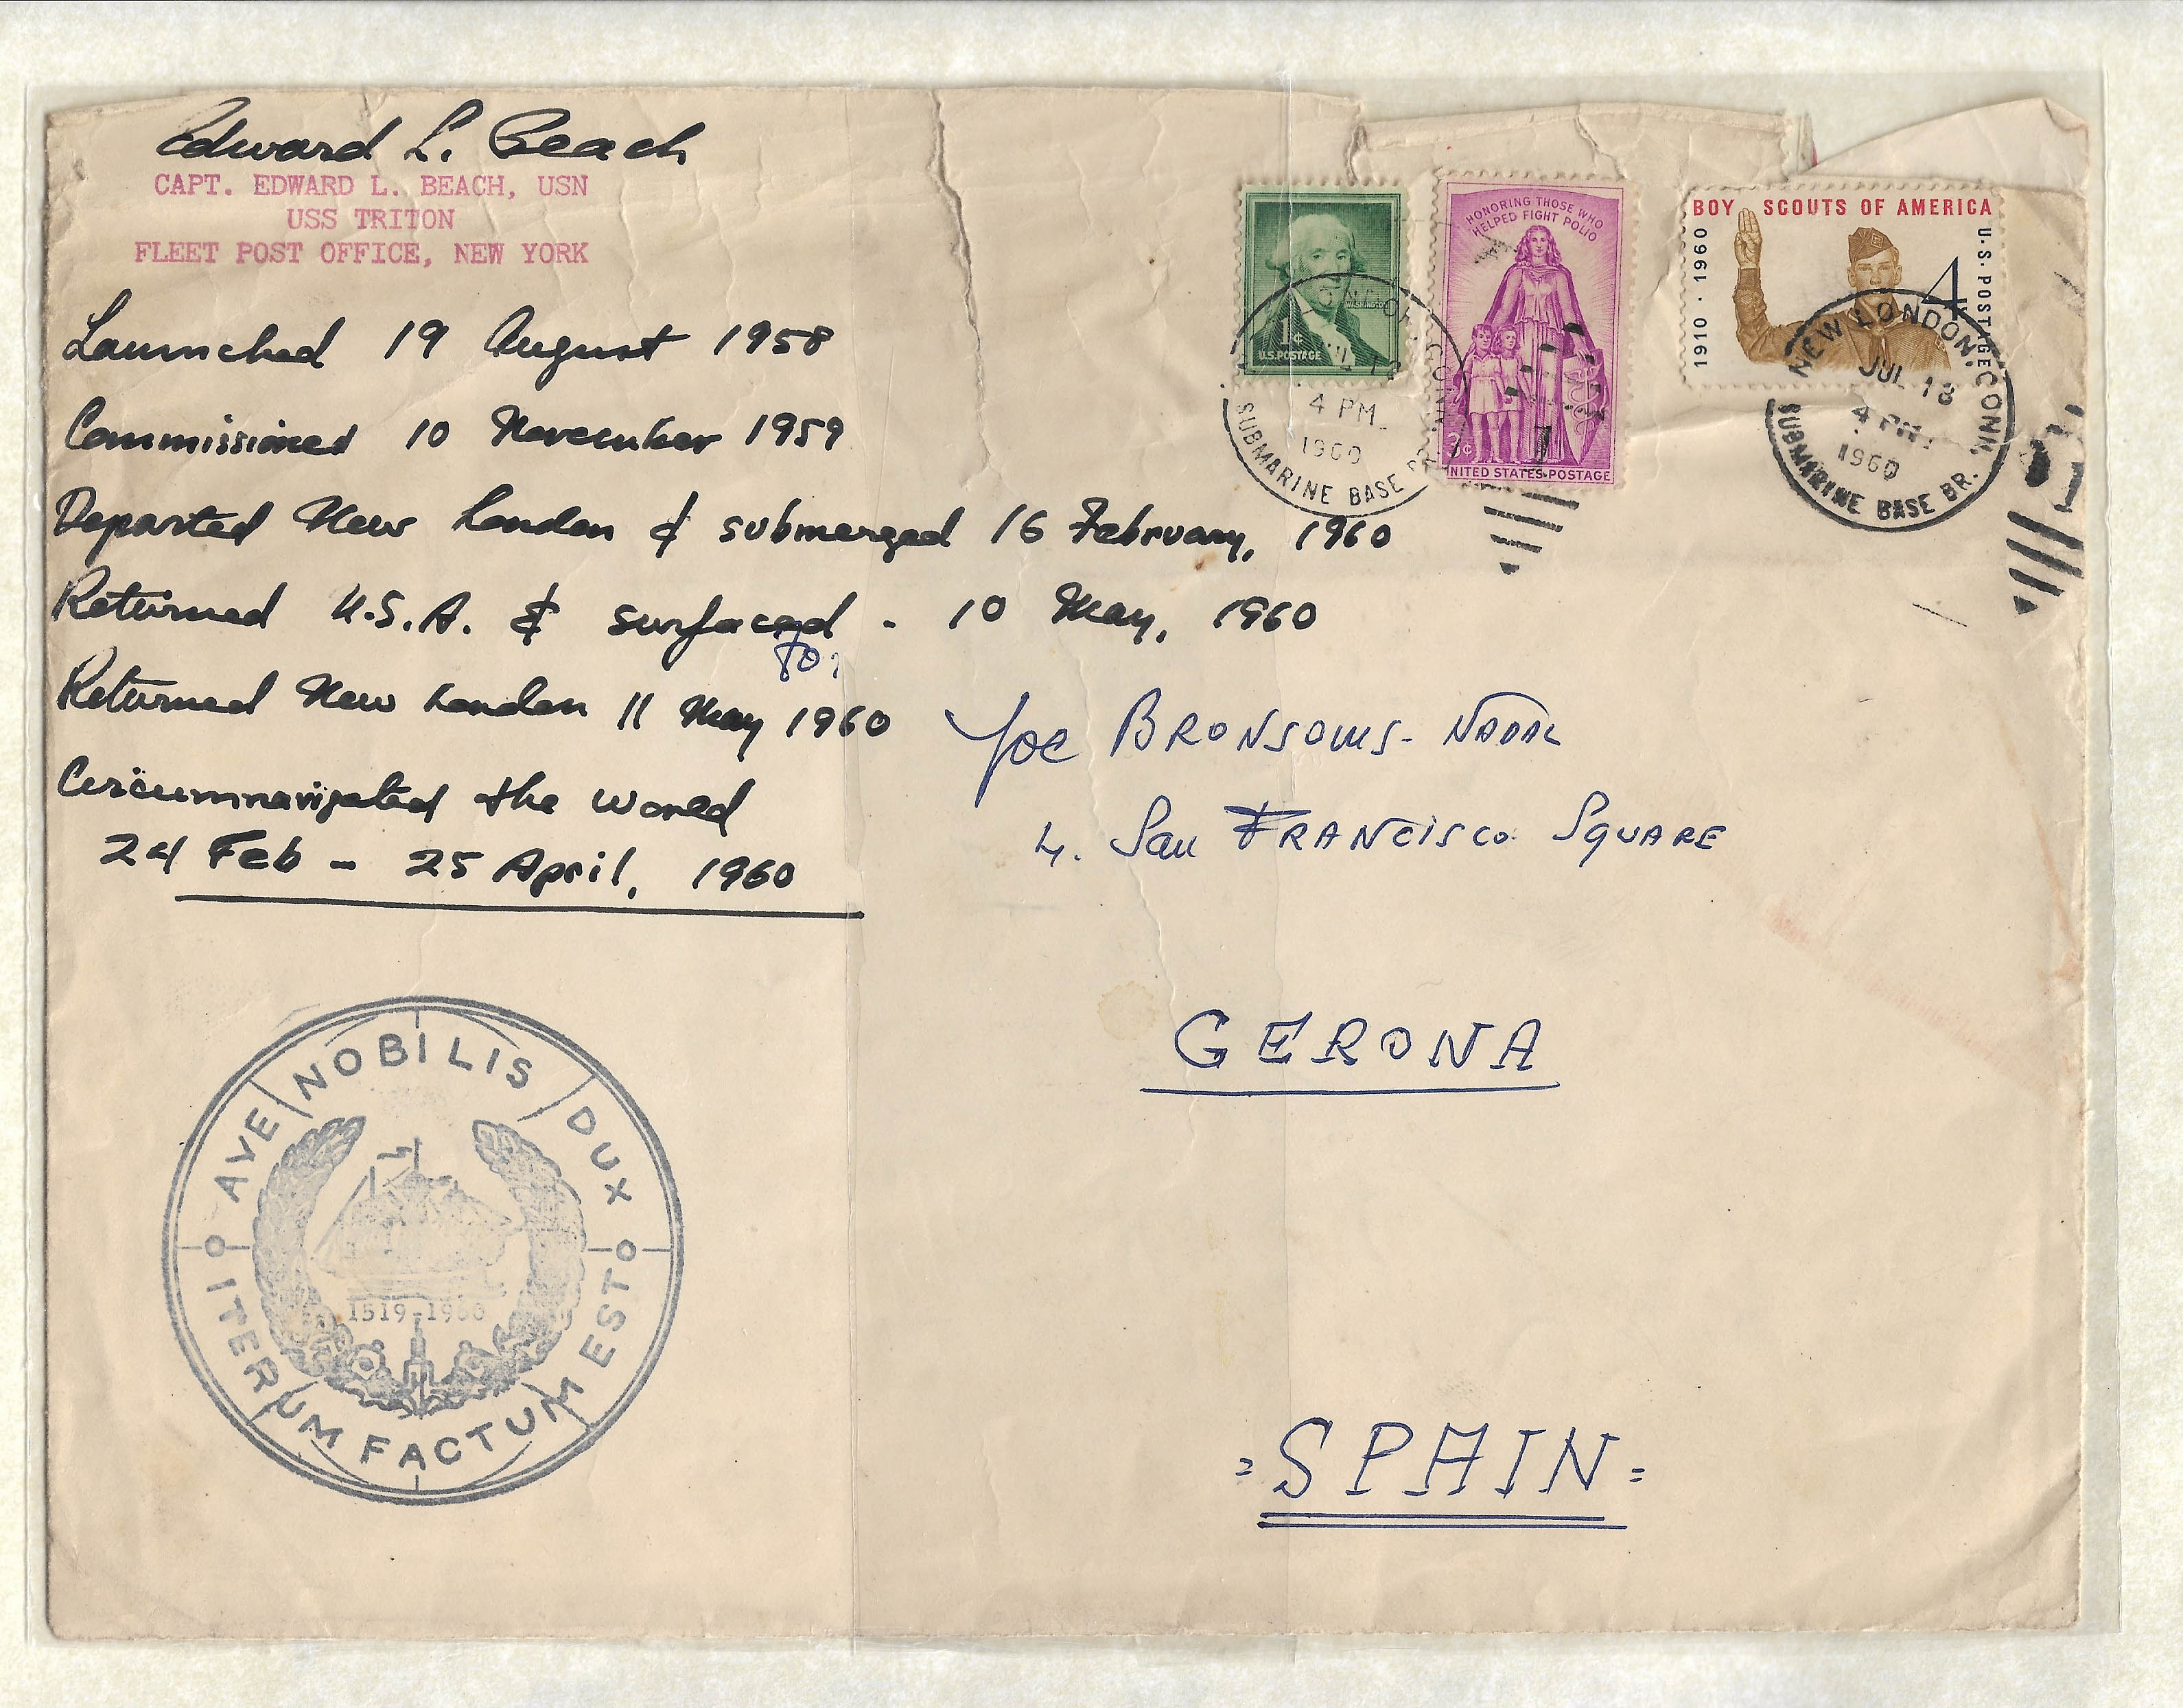 Edward L. Beach
CAPT. EDWARD L. BEACH, USN
USS TRITON
FLEET POST OFFICE, NEW YORK
Launched 19 August 1958
Commissioned 10 November 1959
Departed New London & submerged 16 February, 1960
Returned U.S.A. & surfaced - 10 May, 1960
To:
Returned New London 11 May 1960
Circumnavigated the world
24 Feb - 25 April, 1960
WASHINGTON
1¢
U.S. POSTAGE
HONORING THOSE WHO
HELPED FIGHT POLIO
3¢
UNITED STATES POSTAGE
BOY SCOUTS OF AMERICA
1910 · 1960
U.S. POSTAGE
4
CONN.
4 PM
1960
SUBMARINE BASE BR.
NEW LONDON, CONN.
JUL 18
4 PM
1960
SUBMARINE BASE BR.
NADAL
4. San FRANCISCO SQUARE
GERONA
=SPAIN=
AVE NOBILIS DUX
ITERUM FACTUM EST
1519-1960